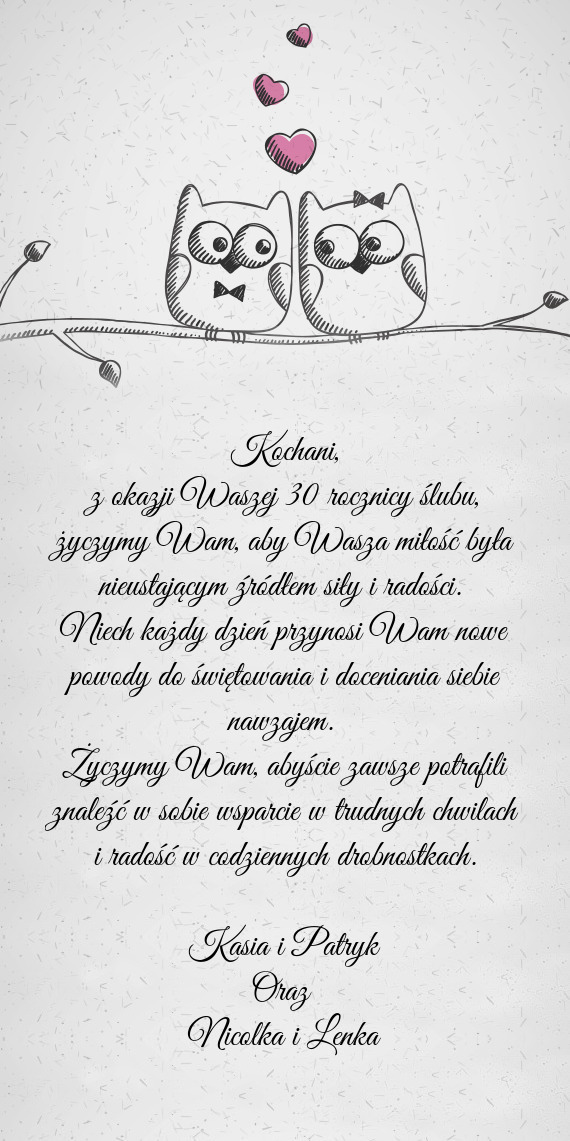 Kochani,
z okazji Waszej 30 rocznicy ślubu,
życzymy Wam, aby Wasza miłość była
nieustającym źródłem siły i radości.
Niech każdy dzień przynosi Wam nowe
powody do świętowania i doceniania siebie
nawzajem.
Życzymy Wam, abyście zawsze potrafili
znaleźć w sobie wsparcie w trudnych chwilach
i radość w codziennych drobnostkach.
Kasia i Patryk
Oraz
Nicolka i Lenka